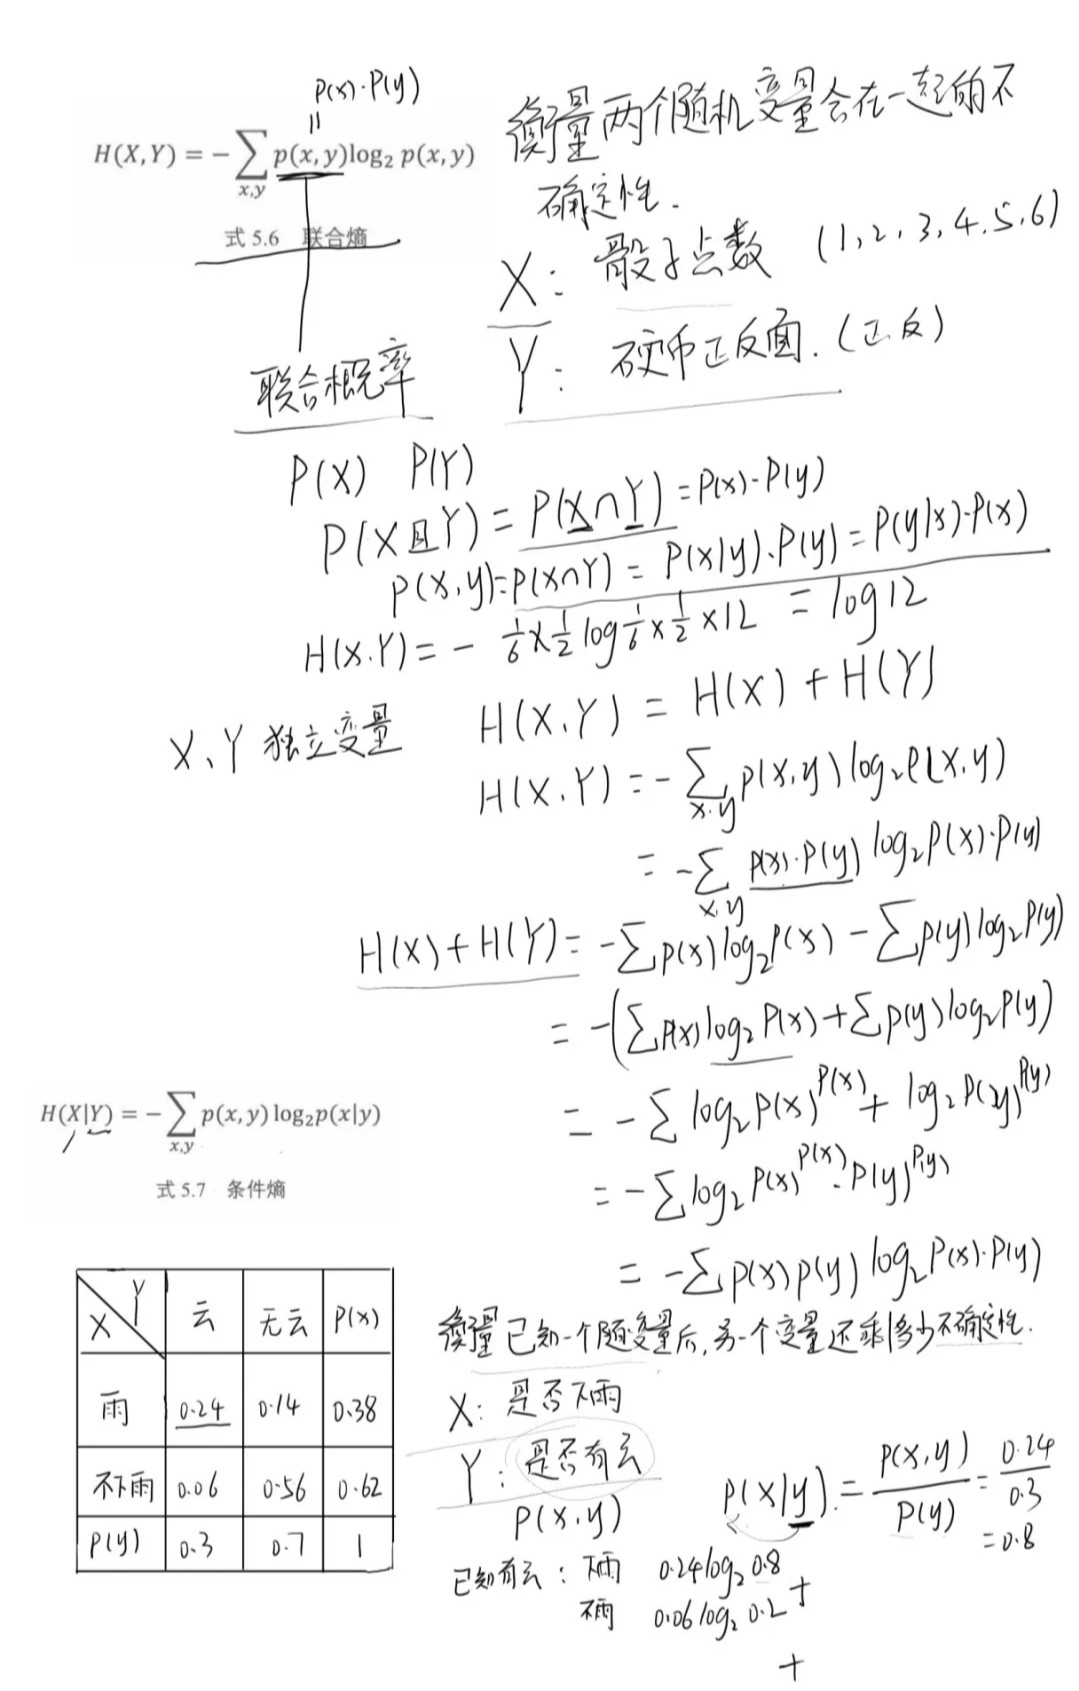 P(x)·P(y)
||
H(X,Y) = −∑p(x,y)log₂ p(x,y)
x,y
式 5.6 联合熵
衡量两个随机变量会在一起的不
确定性.
X: 骰子点数 (1,2,3,4,5,6)
Y: 硬币正反面. (正反)
联合概率
P(X) P(Y)
P(X且Y) = P(X∩Y) = P(x)·P(y)
P(x,y)=P(X∩Y) = P(x|y)·P(y) = P(y|x)·P(x)
H(X.Y) = − 1/6 × 1/2 log 1/6 × 1/2 ×12 = log12
X、Y 独立变量 H(X,Y) = H(X) + H(Y)
H(X,Y) = −∑ p(x,y) log₂P(x,y)
x.y
= −∑ P(x)·P(y) log₂P(x)·P(y)
x,y
H(X)+H(Y) = −∑p(x)log₂P(x) − ∑p(y)log₂P(y)
= −(∑P(x)log₂P(x)+∑p(y)log₂P(y)
= −∑ log₂P(x)^P(x) + log₂P(y)^P(y)
= −∑log₂P(x)^P(x)·P(y)^P(y)
= −∑P(x)P(y) log₂P(x)·P(y)
H(X|Y) = −∑p(x,y) log₂p(x|y)
x,y
式 5.7 条件熵
X Y 云 无云 P(x)
雨 0.24 0.14 0.38
不下雨 0.06 0.56 0.62
P(y) 0.3 0.7 1
衡量已知一个随变量后,另一个变量还剩多少不确定性.
X: 是否下雨
Y: 是否有云
P(x,y)
P(x|y) = P(x,y)/P(y) = 0.24/0.3
=0.8
已知有云: 下雨 0.24log₂0.8
+
不雨 0.06log₂0.2
+